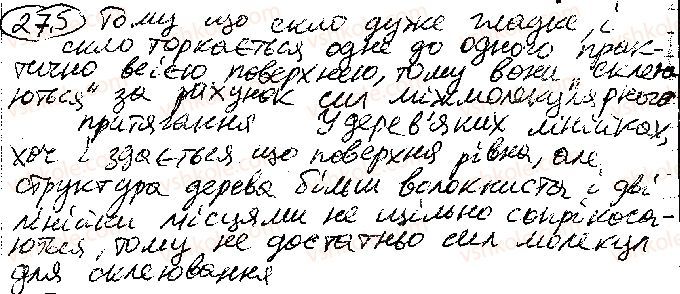 275 Тому що скло дуже гладке, і
скло торкається одне до одного прак-
тично всією поверхнею, тому вони "склею-
ються" за рахунок сил міжмолекулярного
притягання У дерев'яних лінійках,
хоч і здається що поверхня рівна, але
структура дерева більш волокниста і дві
лінійки місцями не щільно сопрікоса-
ються, тому не достатньо сил молекул
для склеювання